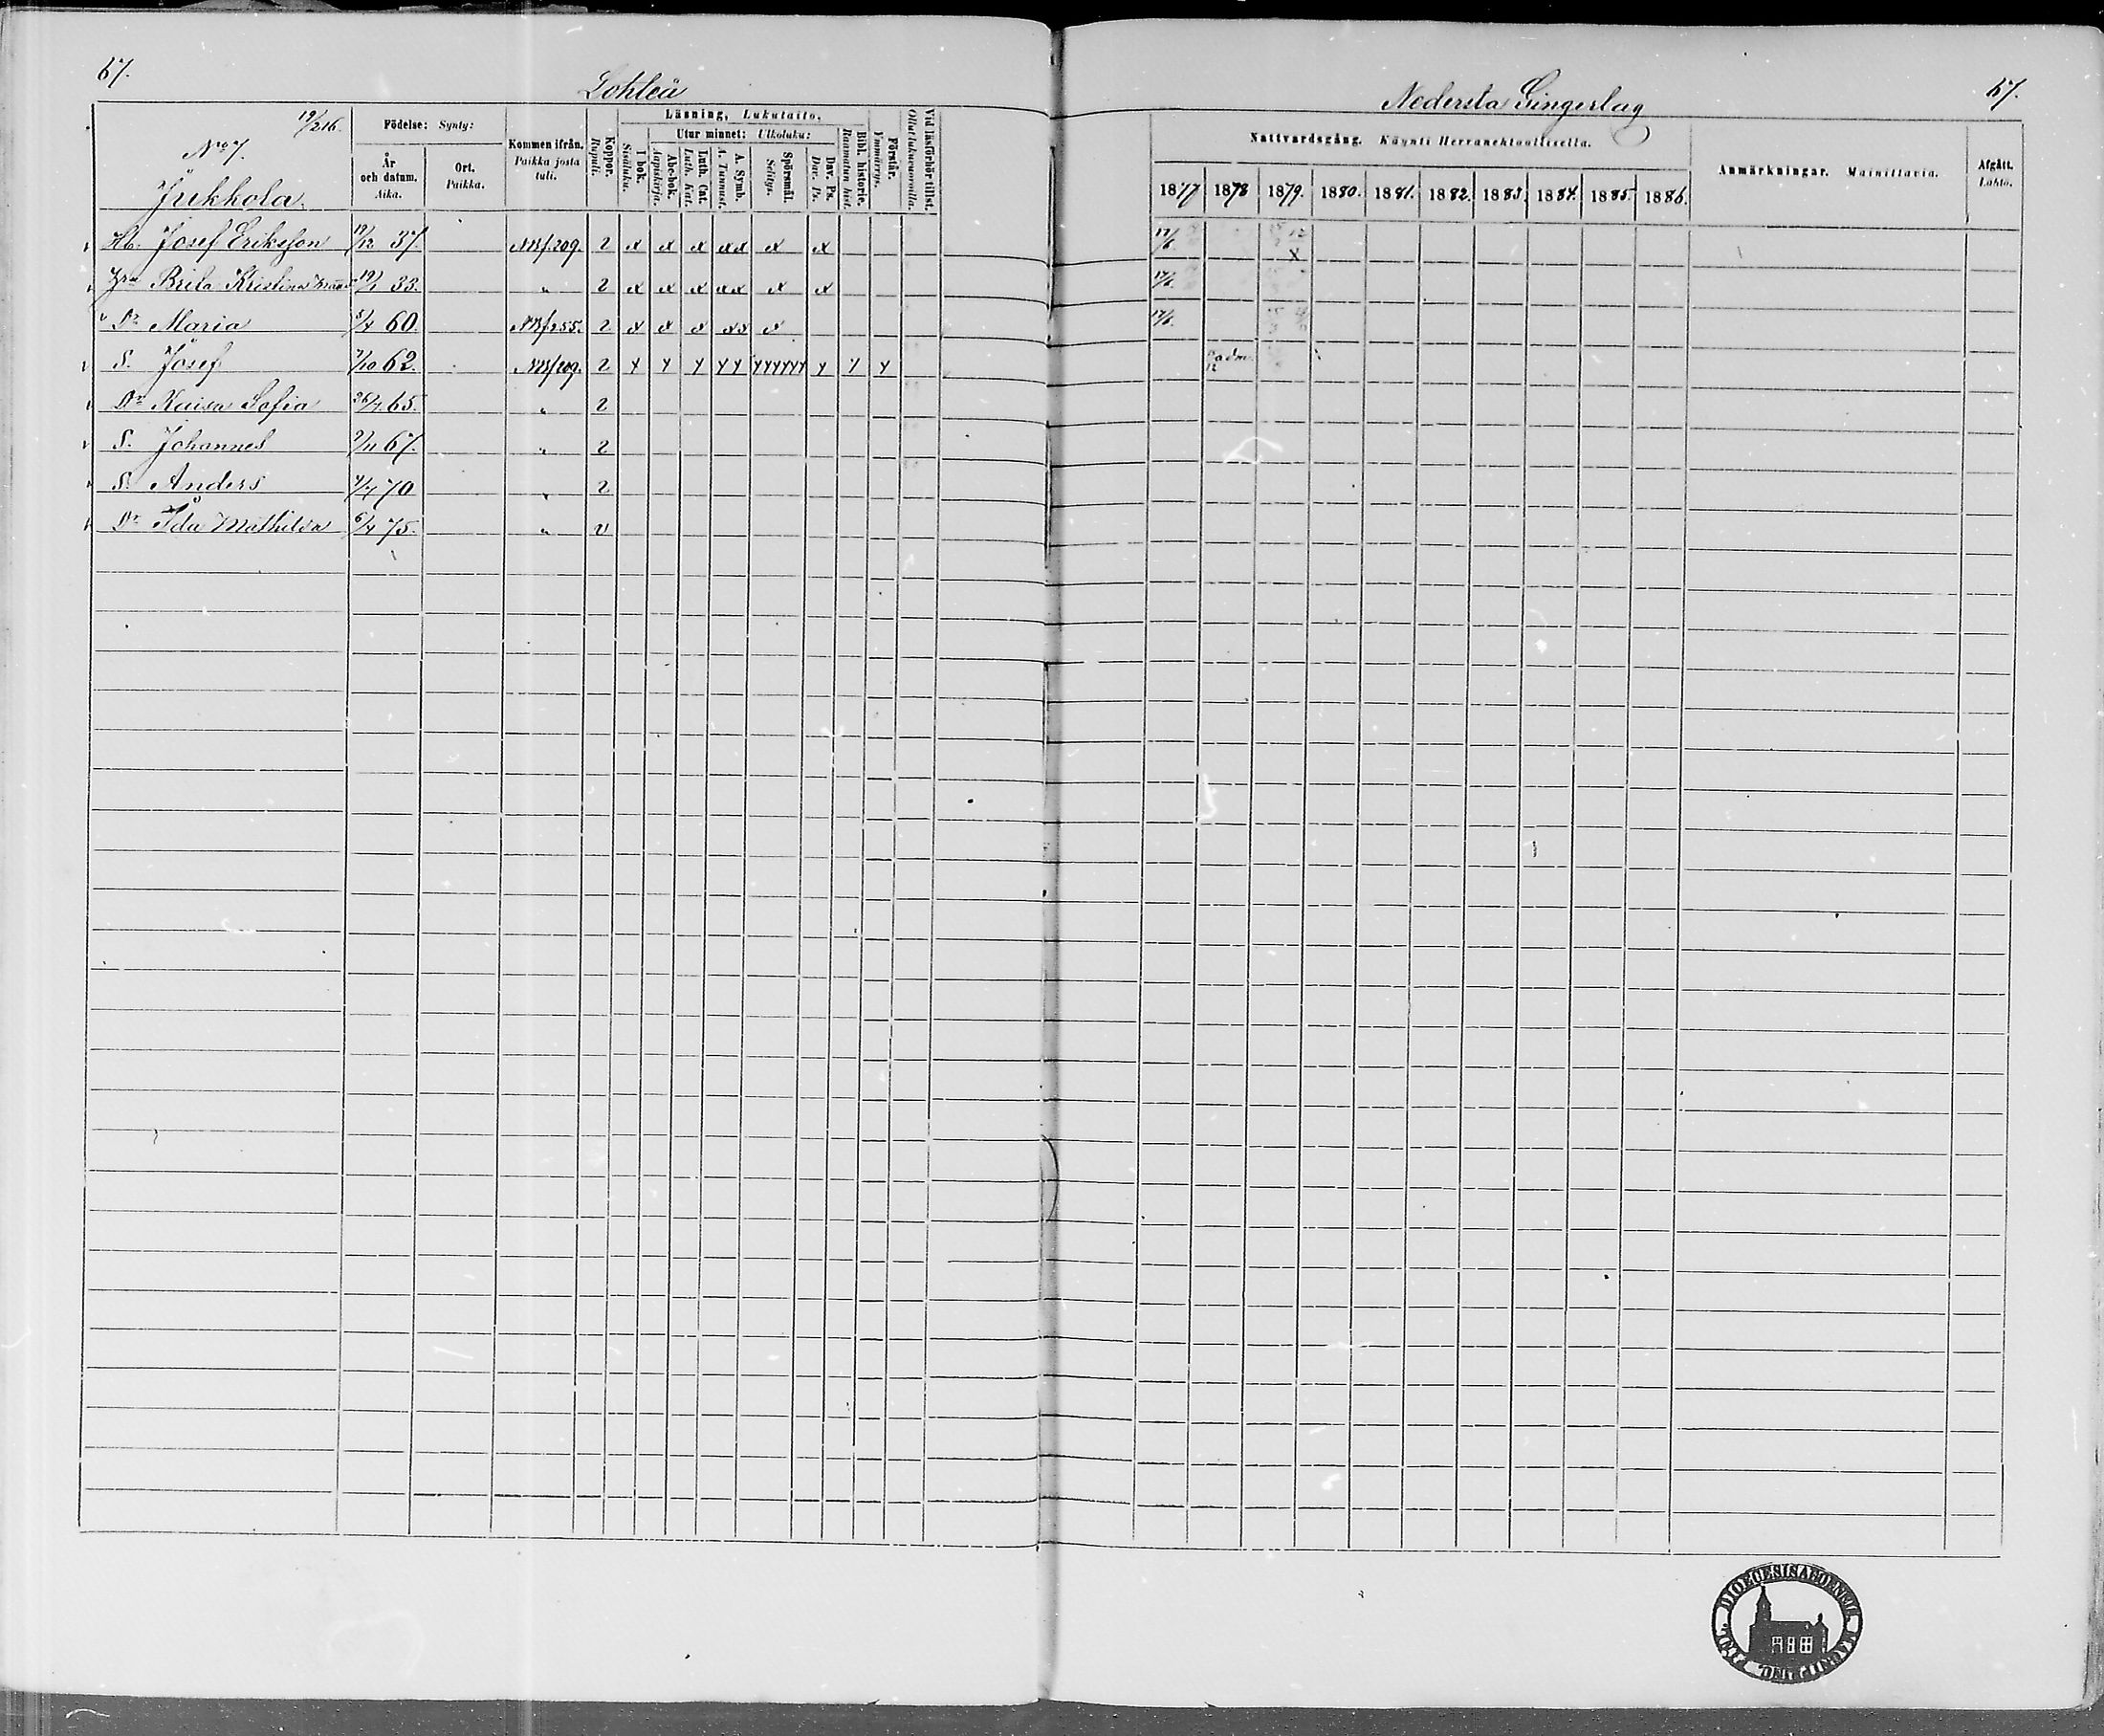 67.
Lohteå
Nedersta Gingerbag
67.
19/216.
No 7.
Jukkola.
Födelse: Synty:
År och datum. Aika.
Ort. Paikka.
Kommen ifrån. Paikka josta tuli.
Koppor. Rupuli.
Läsning, Lukutaito.
I bok. Sisäluku.
Utur minnet: Ulkoluku:
Abc-bok. Aapiskirja.
Luth. Cat. Luth. Kat.
A. Symb. A. Tunnust.
Spörsmål. Selitys.
Dav. Ps. Dav. Ps.
Bibl. historie. Raamatun hist.
Förstår. Ymmärrys.
Vid läsförhör tillst. Ollut lukuvuoroilla.
Nattvardsgång. Käynti Herranehtoollisella.
1877 1878 1879. 1880. 1881. 1882. 1883. 1884. 1885. 1886.
Anmärkningar. Muistuttavia.
Afgått. Lähtö.
Hb. Josef Eriksson 19/12 37. NB f. 209. 2 x x x xx x x 17/6. x
Hru Brita Kristina 19/1 33. " 2 x x x xx x x 17/6.
Dr Maria 5/4 60. NB f 255. 2 x x x xx x 17/6.
S. Josef 7/10 62. NB f 209. 2 y y y yy yyyyyy y y y adm.
Dr Kaisa Sofia 26/7 65. " 2
S. Johannes 9/11 67. " 2
S. Anders 4/7 70 " 2
Dr Ida Mathilda 6/4 75. " v
DIOECESIS ABOENSIS